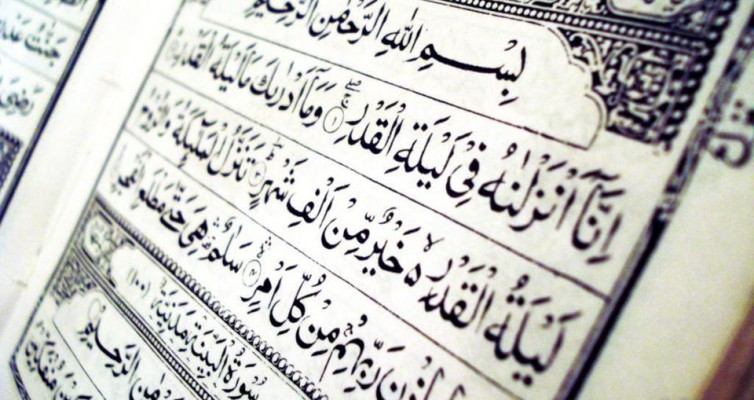 بِسْمِ اللهِ الرَّحْمٰنِ الرَّحِيْمِ
اِنَّاۤ اَنْزَلْنٰهُ فِيْ لَيْلَةِ الْقَدْرِ ۝۱ وَمَاۤ اَدْرٰىكَ مَا لَيْلَةُ الْقَدْرِ
لَيْلَةُ الْقَدْرِ ۙ خَيْرٌ مِّنْ اَلْفِ شَهْرٍ ۝۳ تَنَزَّلُ الْمَلٰٓئِكَةُ وَالرُّوْحُ
رَبِّهِمْ مِنْ كُلِّ اَمْرٍ ۝۴ سَلٰمٌ هِيَ حَتّٰى مَطْلَعِ الْفَجْرِ
سُوْرَةُ الْبَيِّنَةِ مَدَنِيَّةٌ (۱۰۰)
الرَّحِيْمِ